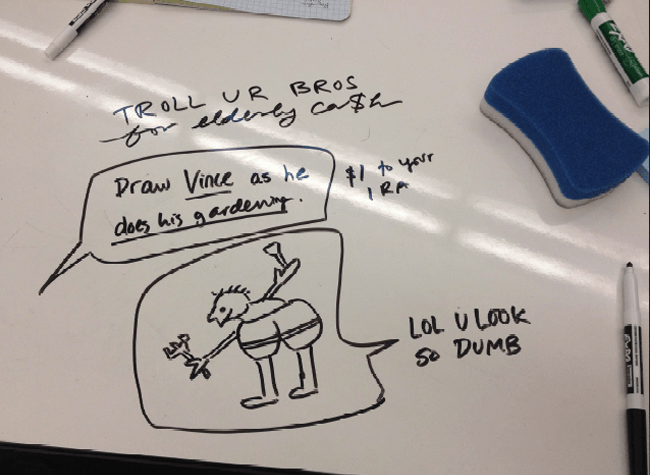 TROLL UR BROS
for elderly ca$h
Draw Vince as he
does his gardening.
$1 to your
1 RA
LOL U LOOK
SO DUMB
EXPO